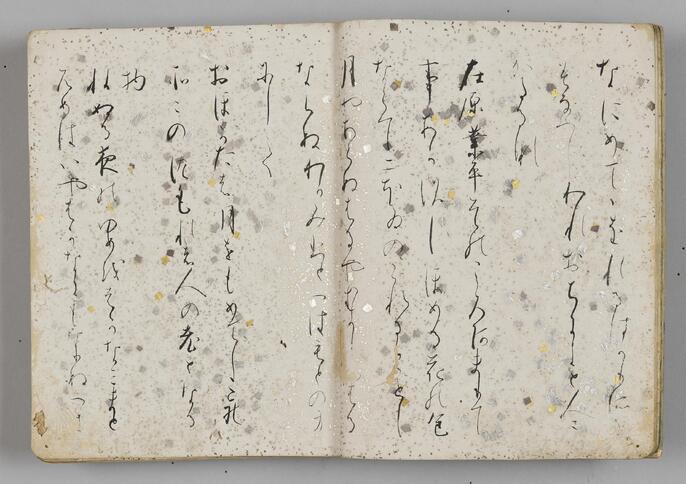 なにめてゝをれるはかりそ
をみなへしわれおちにきと人に
かたるな
在原業平はその心あまりて
事たらすしほめる花の色
なくてにほひのこれるかことし
月やあらぬはるやむかしのはる
ならぬわかみひとつはもとのみ
にして
おほかたは月をもめてしこれ
そこのつもれは人の老となる
物
ねぬる夜のゆめをはかなみまと
ろめはいやはかなにもなりまさ